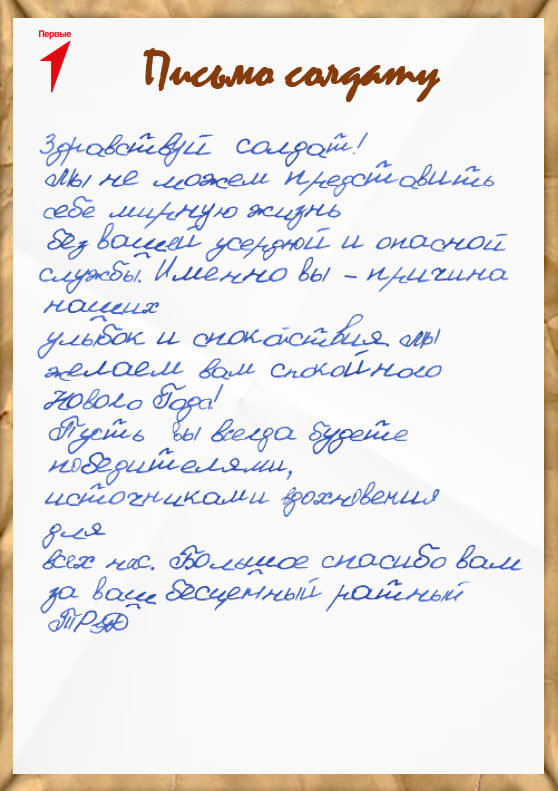 Первые
Письмо солдату
Здравствуй солдат!
Мы не можем представить
себе мирную жизнь
без вашей усердной и опасной
службы. Именно вы - причина
наших
улыбок и спокойствия. Мы
желаем вам спокойного
Нового Года!
Пусть вы всегда будете
победителями,
источниками вдохновения
для
всех нас. Большое спасибо вам
за ваш бесценный ратный
труд